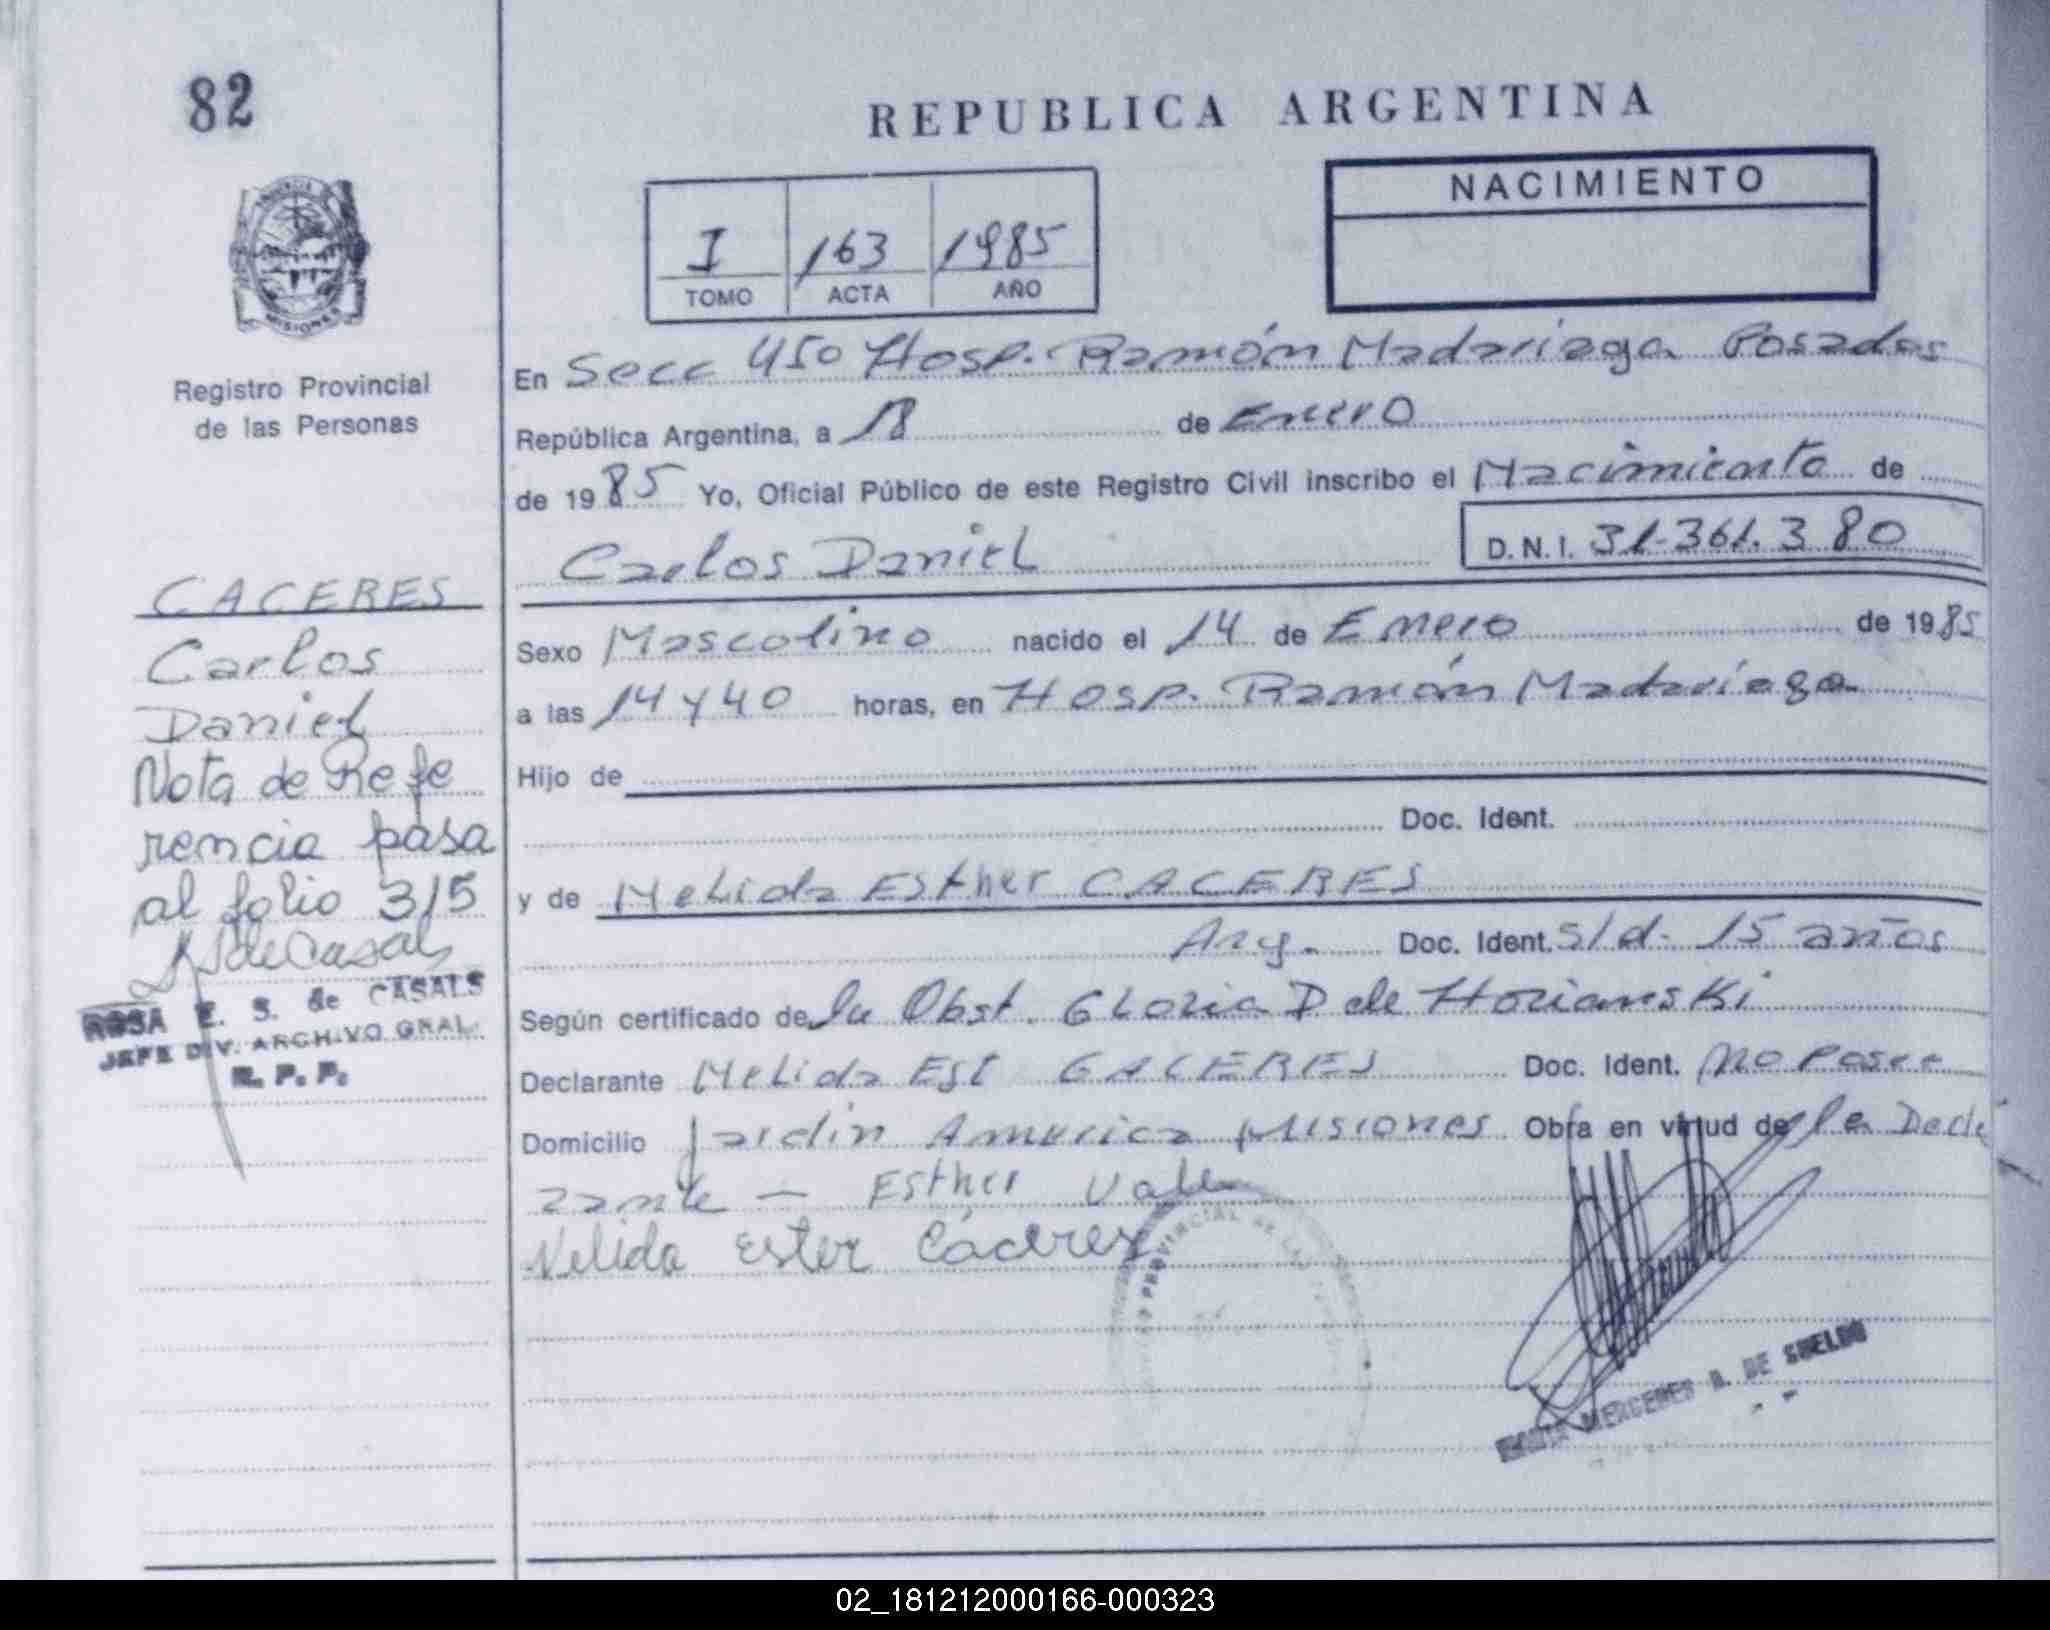 82
REPUBLICA ARGENTINA
NACIMIENTO
I 163 1985
TOMO ACTA AÑO
MISIONES
Registro Provincial
de las Personas
CACERES
Carlos
Daniel
Nota de Refe
rencia pasa
al folio 315
ROSA E. S. de CASALS
JEFE DIV. ARCHIVO GRAL.
R. P. P.
En Secc 450 Hosp. Ramón Madariaga Posadas
República Argentina, a 18 de Enero
de 1985 Yo, Oficial Público de este Registro Civil inscribo el Nacimiento de
Carlos Daniel D.N.I. 31.361.380
Sexo Mascolino nacido el 14 de Enero de 1985
a las 14 y 40 horas, en Hosp. Ramón Madariaga
Hijo de
Doc. Ident.
y de Nelida Esther CACERES
Arg. Doc. Ident. s/d. 15 años
Según certificado de la Obst. Gloria D de Horianski
Declarante Nelida Est CACERES Doc. Ident. no posee
Domicilio Jardin America Misiones Obra en virtud de la Decla
rante — Esther Vale
Nelida Ester Cáceres
PROVINCIAL de LAS
MERCEDES R. DE SUELDO
02_181212000166-000323